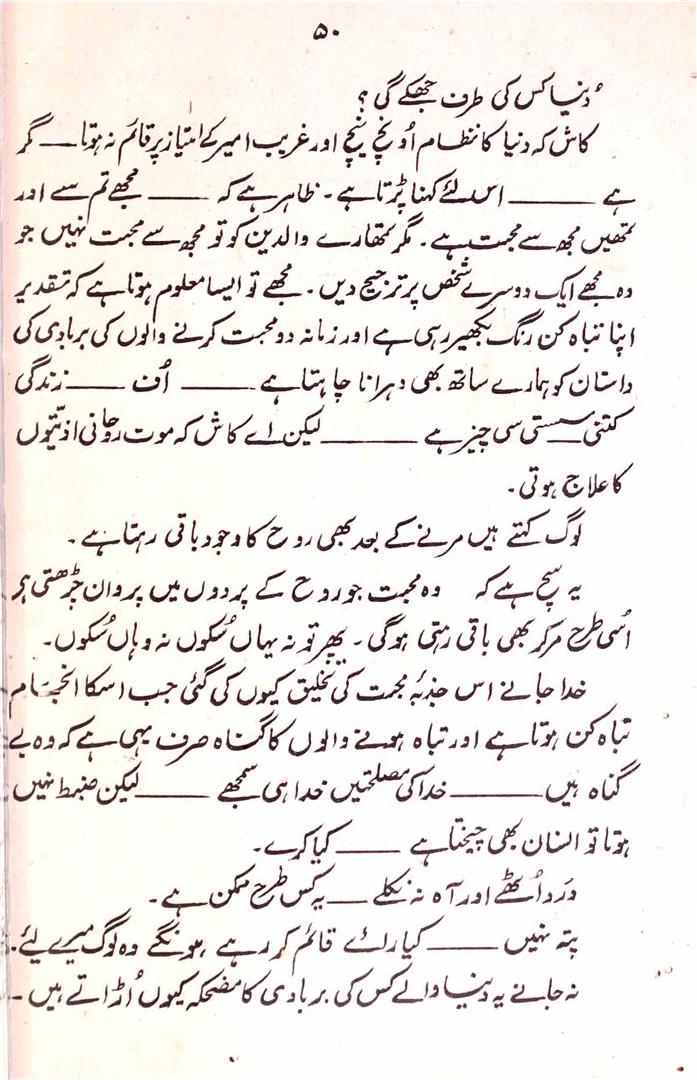 ۵۰
دُنیا کس کی طرف جھکے گی؟
کاش کہ دنیا کا نظام اُونچ نیچ اور غریب امیر کے امتیاز پر قائم نہ ہوتا — مگر
ہے —— اس لئے کہنا پڑتا ہے۔ ظاہر ہے کہ —— مجھے تم سے اور
تمھیں مجھ سے محبت ہے۔ مگر تمھارے والدین کو تو مجھ سے محبت نہیں جو
وہ مجھے ایک دوسرے شخص پر ترجیح دیں۔ مجھے تو ایسا معلوم ہوتا ہے کہ تقدیر
اپنا تباہ کن رنگ بکھیر رہی ہے اور زمانہ دو محبت کرنے والوں کی بربادی کی
داستان کو ہمارے ساتھ بھی دہرانا چاہتا ہے —— اُف —— زندگی
کتنی سستی سی چیز ہے —— لیکن اے کاش کہ موت روحانی اذیّتوں
کا علاج ہوتی۔
لوگ کہتے ہیں مرنے کے بعد بھی روح کا وجود باقی رہتا ہے۔
یہ سچ ہے کہ وہ محبت جو روح کے پردوں میں پروان چڑھتی ہے
اُسی طرح مرکر بھی باقی رہتی ہوگی۔ پھر تو نہ یہاں سُکوں نہ وہاں سُکوں۔
خدا جانے اس جذبۂ محبت کی تخلیق کیوں کی گئی جب اسکا انجام
تباہ کن ہوتا ہے اور تباہ ہونے والوں کا گناہ صرف یہی ہے کہ وہ بے
گناہ ہیں —— خدا کی مصلحتیں خدا ہی سمجھے —— لیکن ضبط نہیں
ہوتا تو انسان بھی چیختا ہے —— کیا کرے۔
درد اُٹھے اور آہ نہ نکلے — یہ کس طرح ممکن ہے۔
پتہ نہیں —— کیا رائے قائم کر رہے ہونگے وہ لوگ میرے لئے۔
نہ جانے یہ دنیا والے کس کی بربادی کا مضحکہ کیوں اُڑاتے ہیں۔